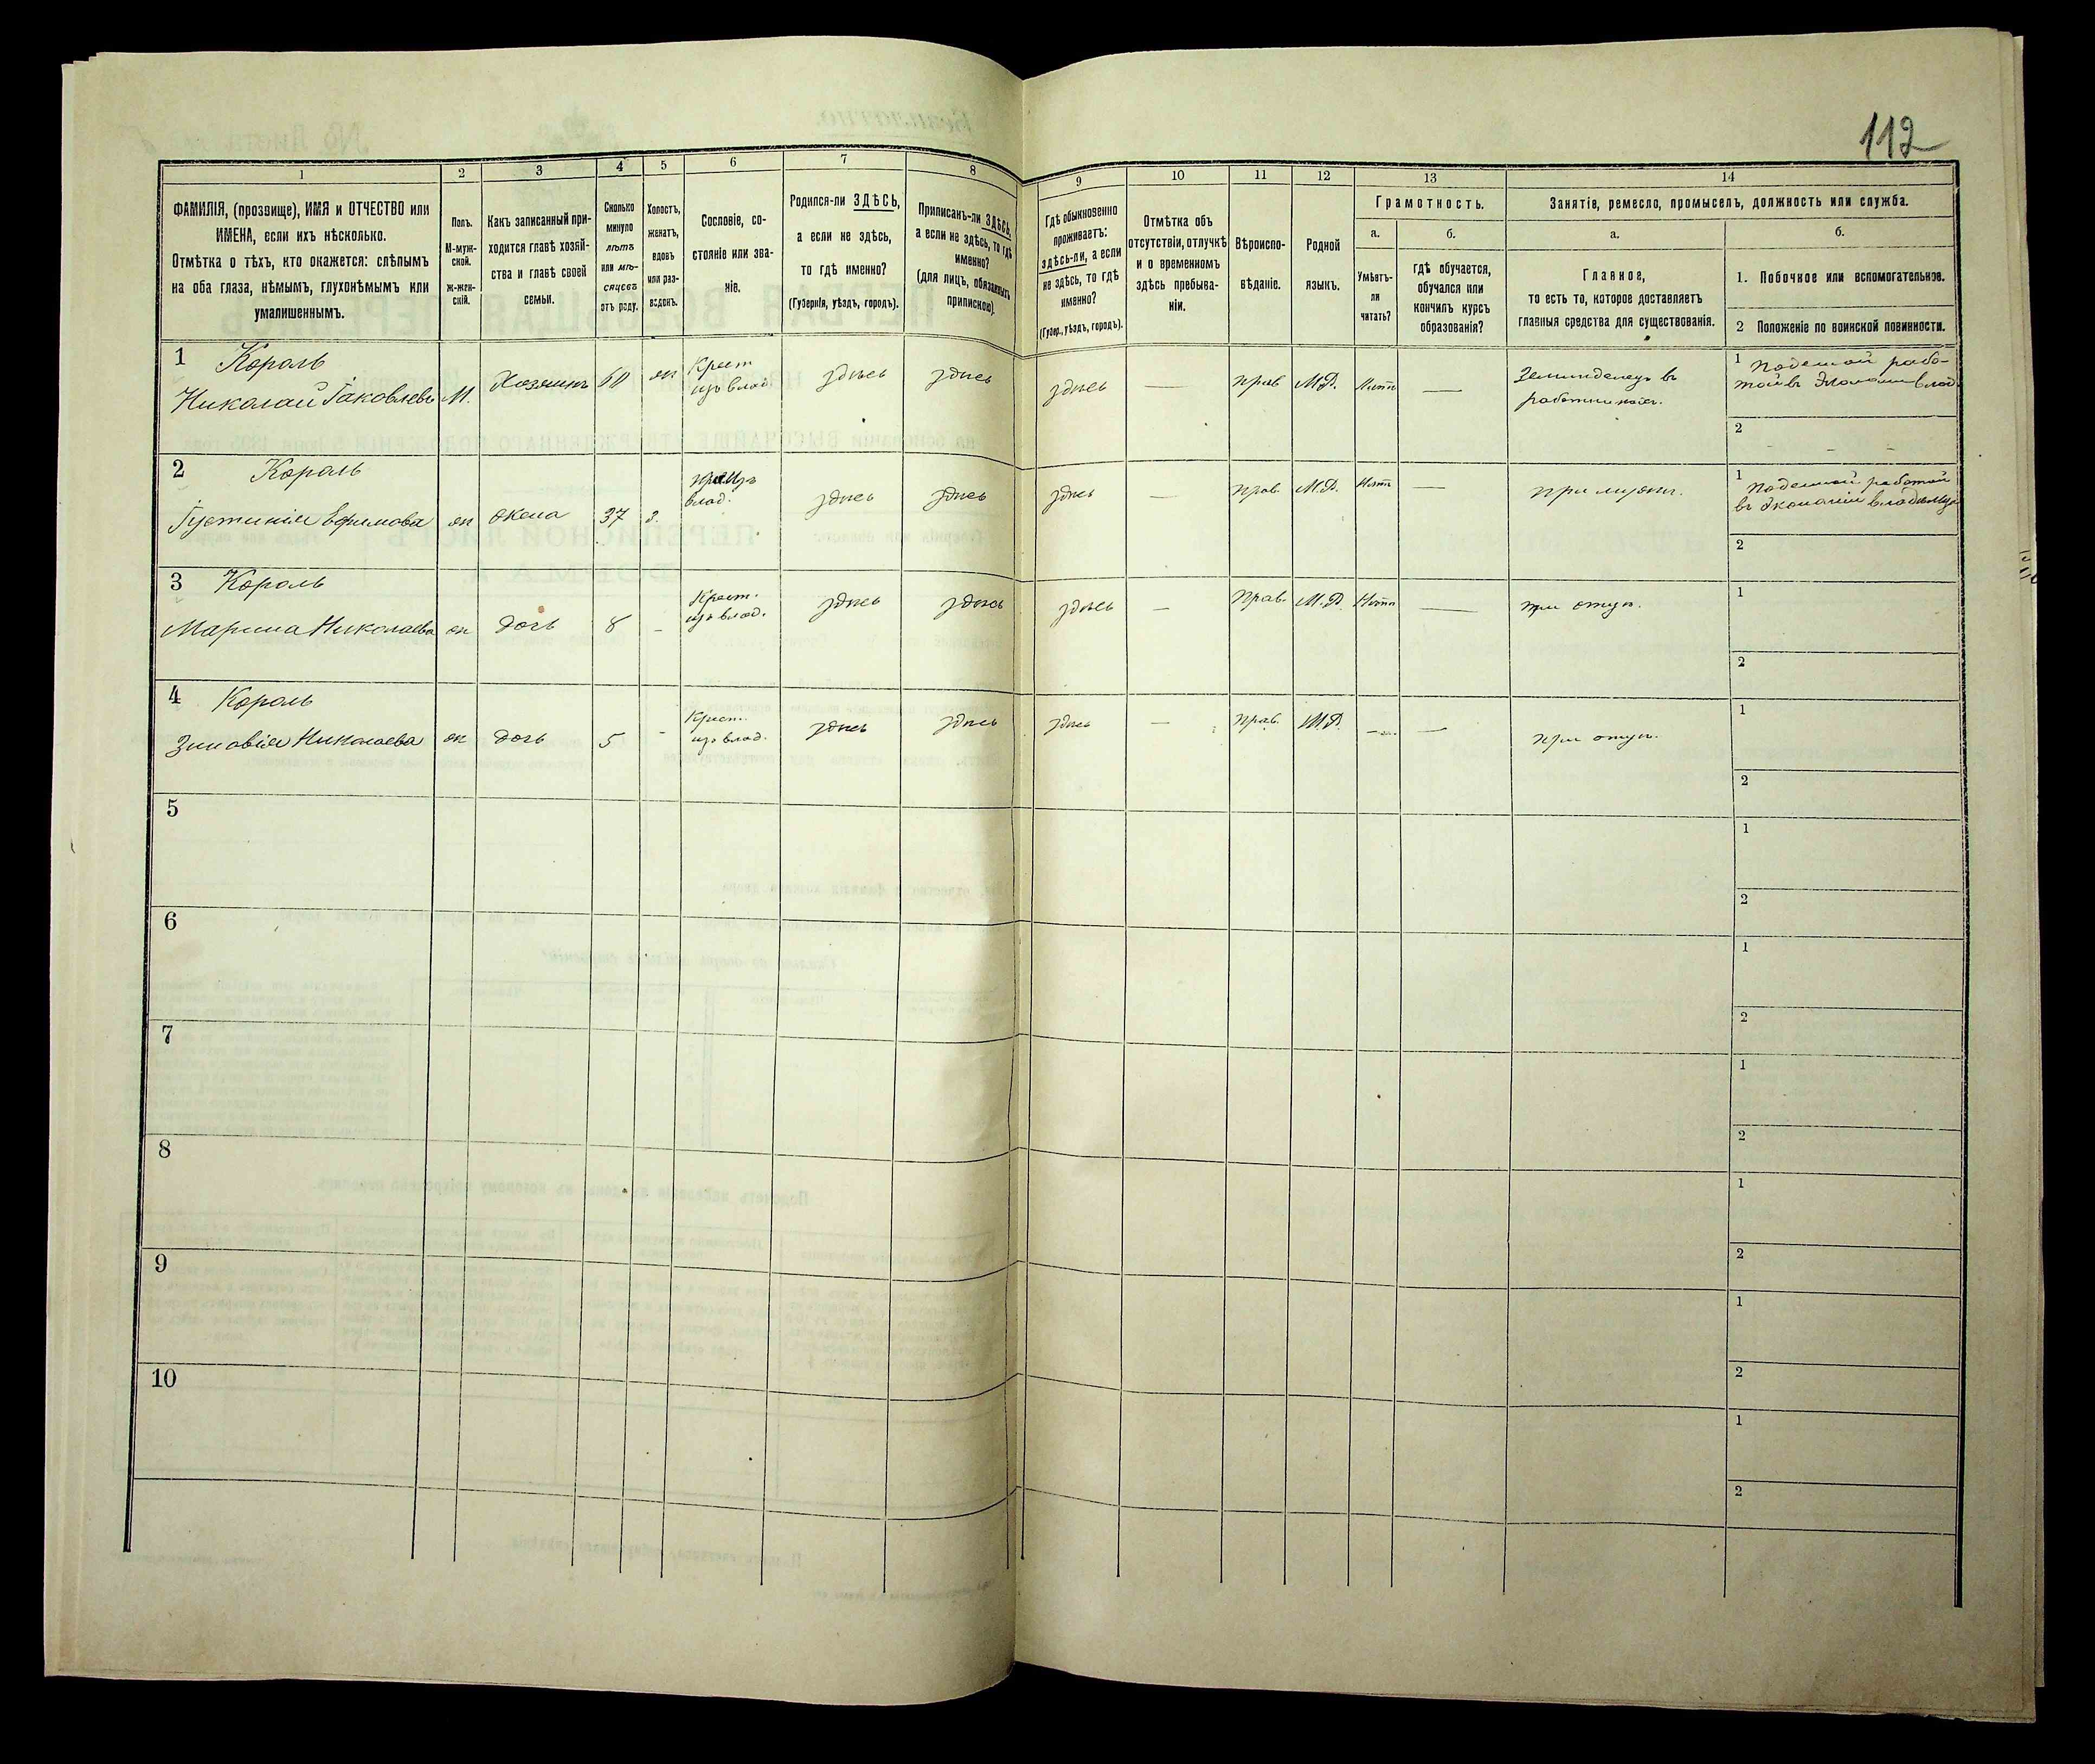 112
1
2
3
4
5
6
7
8
9
10
11
12
13
14
ФАМИЛІЯ, (прозвище), ИМЯ и ОТЧЕСТВО или
ИМЕНА, если ихъ нѣсколько.
Отмѣтка о тѣхъ, кто окажется: слѣпымъ
на оба глаза, нѣмымъ, глухонѣмымъ или
умалишеннымъ.
Полъ.
М-муж-
ской.
ж-жен-
скій.
Какъ записанный при-
ходится главѣ хозяй-
ства и главѣ своей
семьи.
Сколько
минуло
лѣтъ
или мѣ-
сяцевъ
отъ роду.
Холостъ,
женатъ,
вдовъ
или раз-
веденъ.
Сословіе, со-
стояніе или зва-
ніе.
Родился-ли ЗДѢСЬ,
а если не здѣсь,
то гдѣ именно?
(Губернія, уѣздъ, городъ).
Приписанъ-ли ЗДѢСЬ,
а если не здѣсь, то гдѣ
именно?
(для лицъ, обязанныхъ
припискою).
Гдѣ обыкновенно
проживаетъ:
здѣсь-ли, а если
не здѣсь, то гдѣ
именно?
(Губер., уѣздъ, городъ).
Отмѣтка объ
отсутствіи, отлучкѣ
и о временномъ
здѣсь пребыва-
ніи.
Вѣроиспо-
вѣданіе.
Родной
языкъ.
Грамотность.
а.
Умѣетъ-
ли
читать?
б.
гдѣ обучается,
обучался или
кончилъ курсъ
образованія?
Занятіе, ремесло, промыселъ, должность или служба.
а.
Главное,
то есть то, которое доставляетъ
главныя средства для существованія.
б.
1. Побочное или вспомогательное.
2 Положеніе по воинской повинности.
1 Король
Николай Іаковлевъ
М.
Хозяинъ
60
ж
Крест
изъ влад.
здѣсь
здѣсь
здѣсь
—
прав
М.Р.
Нѣтъ
—
Земледелецъ въ
1 Поденной рабо-
той въ Экономіи влад.
2
2 Король
Іустинія Ефимова
ж
жена
37
з.
влад.
здѣсь
здѣсь
здѣсь
—
прав.
М.Р.
Нѣтъ
—
при мужѣ.
1 Поденной работой
въ Экономіи
2
3 Король
Марина Николаева
ж
дочь
8
–
Крест.
изъ влад.
здѣсь
здѣсь
здѣсь
—
Прав.
М.Р.
Нѣтъ
—
при отцѣ.
1
2
4 Король
Зиновія Николаева
ж
дочь
5
-
Крест.
изъ влад.
здѣсь
здѣсь
здѣсь
—
прав.
М.Р.
—
—
при отцѣ.
1
2
5
1
2
6
1
2
7
1
2
8
1
2
9
1
2
10
1
2